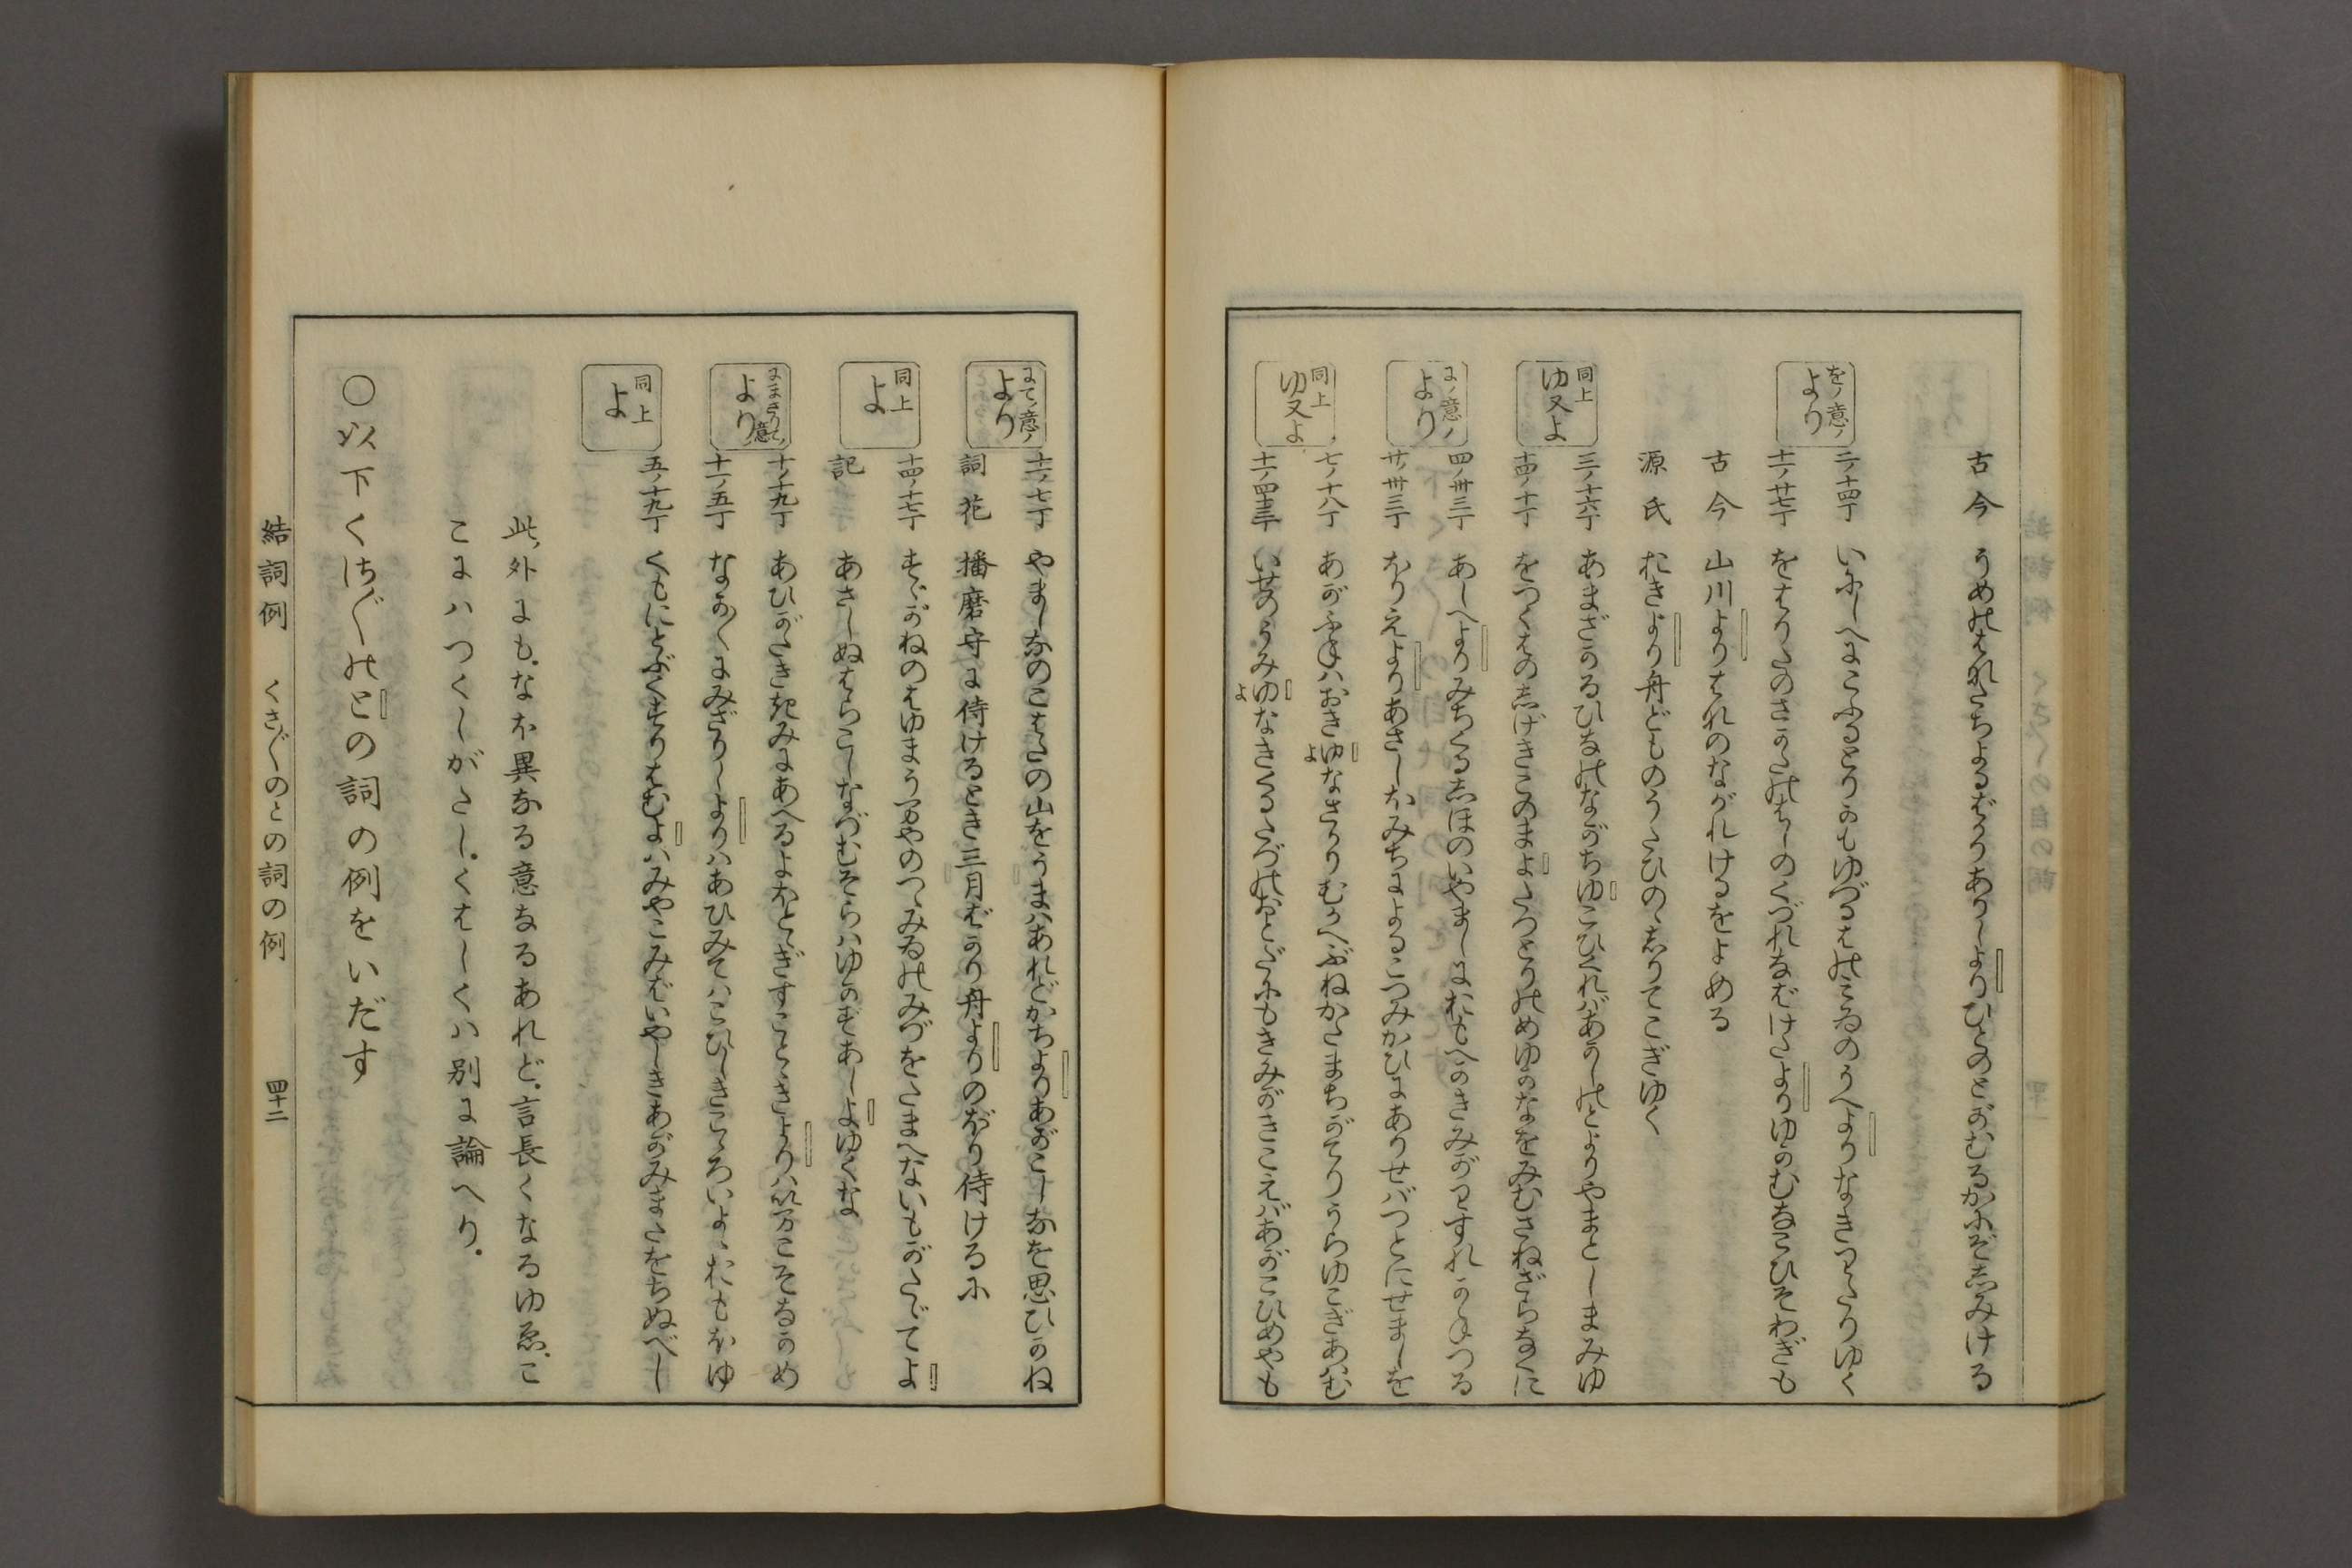 古今 うめのはなたちよるばかりありしよりひとのとがむるかにぞしみける
をノ意ノより
二ノ十四丁 いにしへにこふるとりかもゆづるはのみゐのうへよりなきわたりゆく
十二ノ廿七丁 をはりたのさかたのはしのくづれなばけたよりゆかむなこひそわぎも
古今 山川よりはなのながれけるをよめる
源氏 おきより舟どものうたひのゝしりてこぎゆく
同上 ゆ又よ
三ノ十六丁 あまざかるひなのながぢゆこひくればあかしのとよりやまとしまみゆ
十四ノ十丁 をつくはのしげきこのまよたつとりのめゆかなをみむさねざらなくに
に、意ノより
四ノ卅三丁 あしへよりみちくるしほのいやましにおもへかきみがわすれかねつる
廿ノ卅三丁 ほりえよりあさしほみちによるこつみかひにありせばつとにせましを
同上 ゆ又よ
七ノ十八丁 あがふねはおきゆなさかりむかへぶねかたまちがてりうらゆこぎあはむ
十一ノ四十三丁 いせのうみゆなきくるたづのおとどろもきみがきこえばあがこひめやも
にて、意ノより
十二ノ七丁 やましなのこはたの山をうまはあれどかちよりあがこしなを思ひかね
詞花 播磨守に侍けるとき三月ばかり舟よりのぼり侍けるに
同上 よ
十四ノ十七丁 すゞがねのはゆまうまやのつゝみゐのみづをたまへないもがたゞてよ
記 あさしぬはらこしなづむそらはゆかずあしよゆくな
にまさりて、意 より
十ノ十九丁 あひがたききみにあへるよほとゝぎすことときよりは今こそなかめ
十一ノ五丁 なか〳〵にみざりしよりはあひみてはこひしきこゝろいよゝおもほゆ
同上 よ
五ノ十九丁 くもにとぶくすりはむよはみやこみばいやしきあがみまたをちぬべし
此、外にも。なほ異なる意なるあれど。言長くなるゆゑ。こ
こにはつくしがたし。くはしくは別に論へり。
○以下くさ〴〵のとの詞の例をいだす
結詞例 くさ〴〵のとの詞の例 四十二